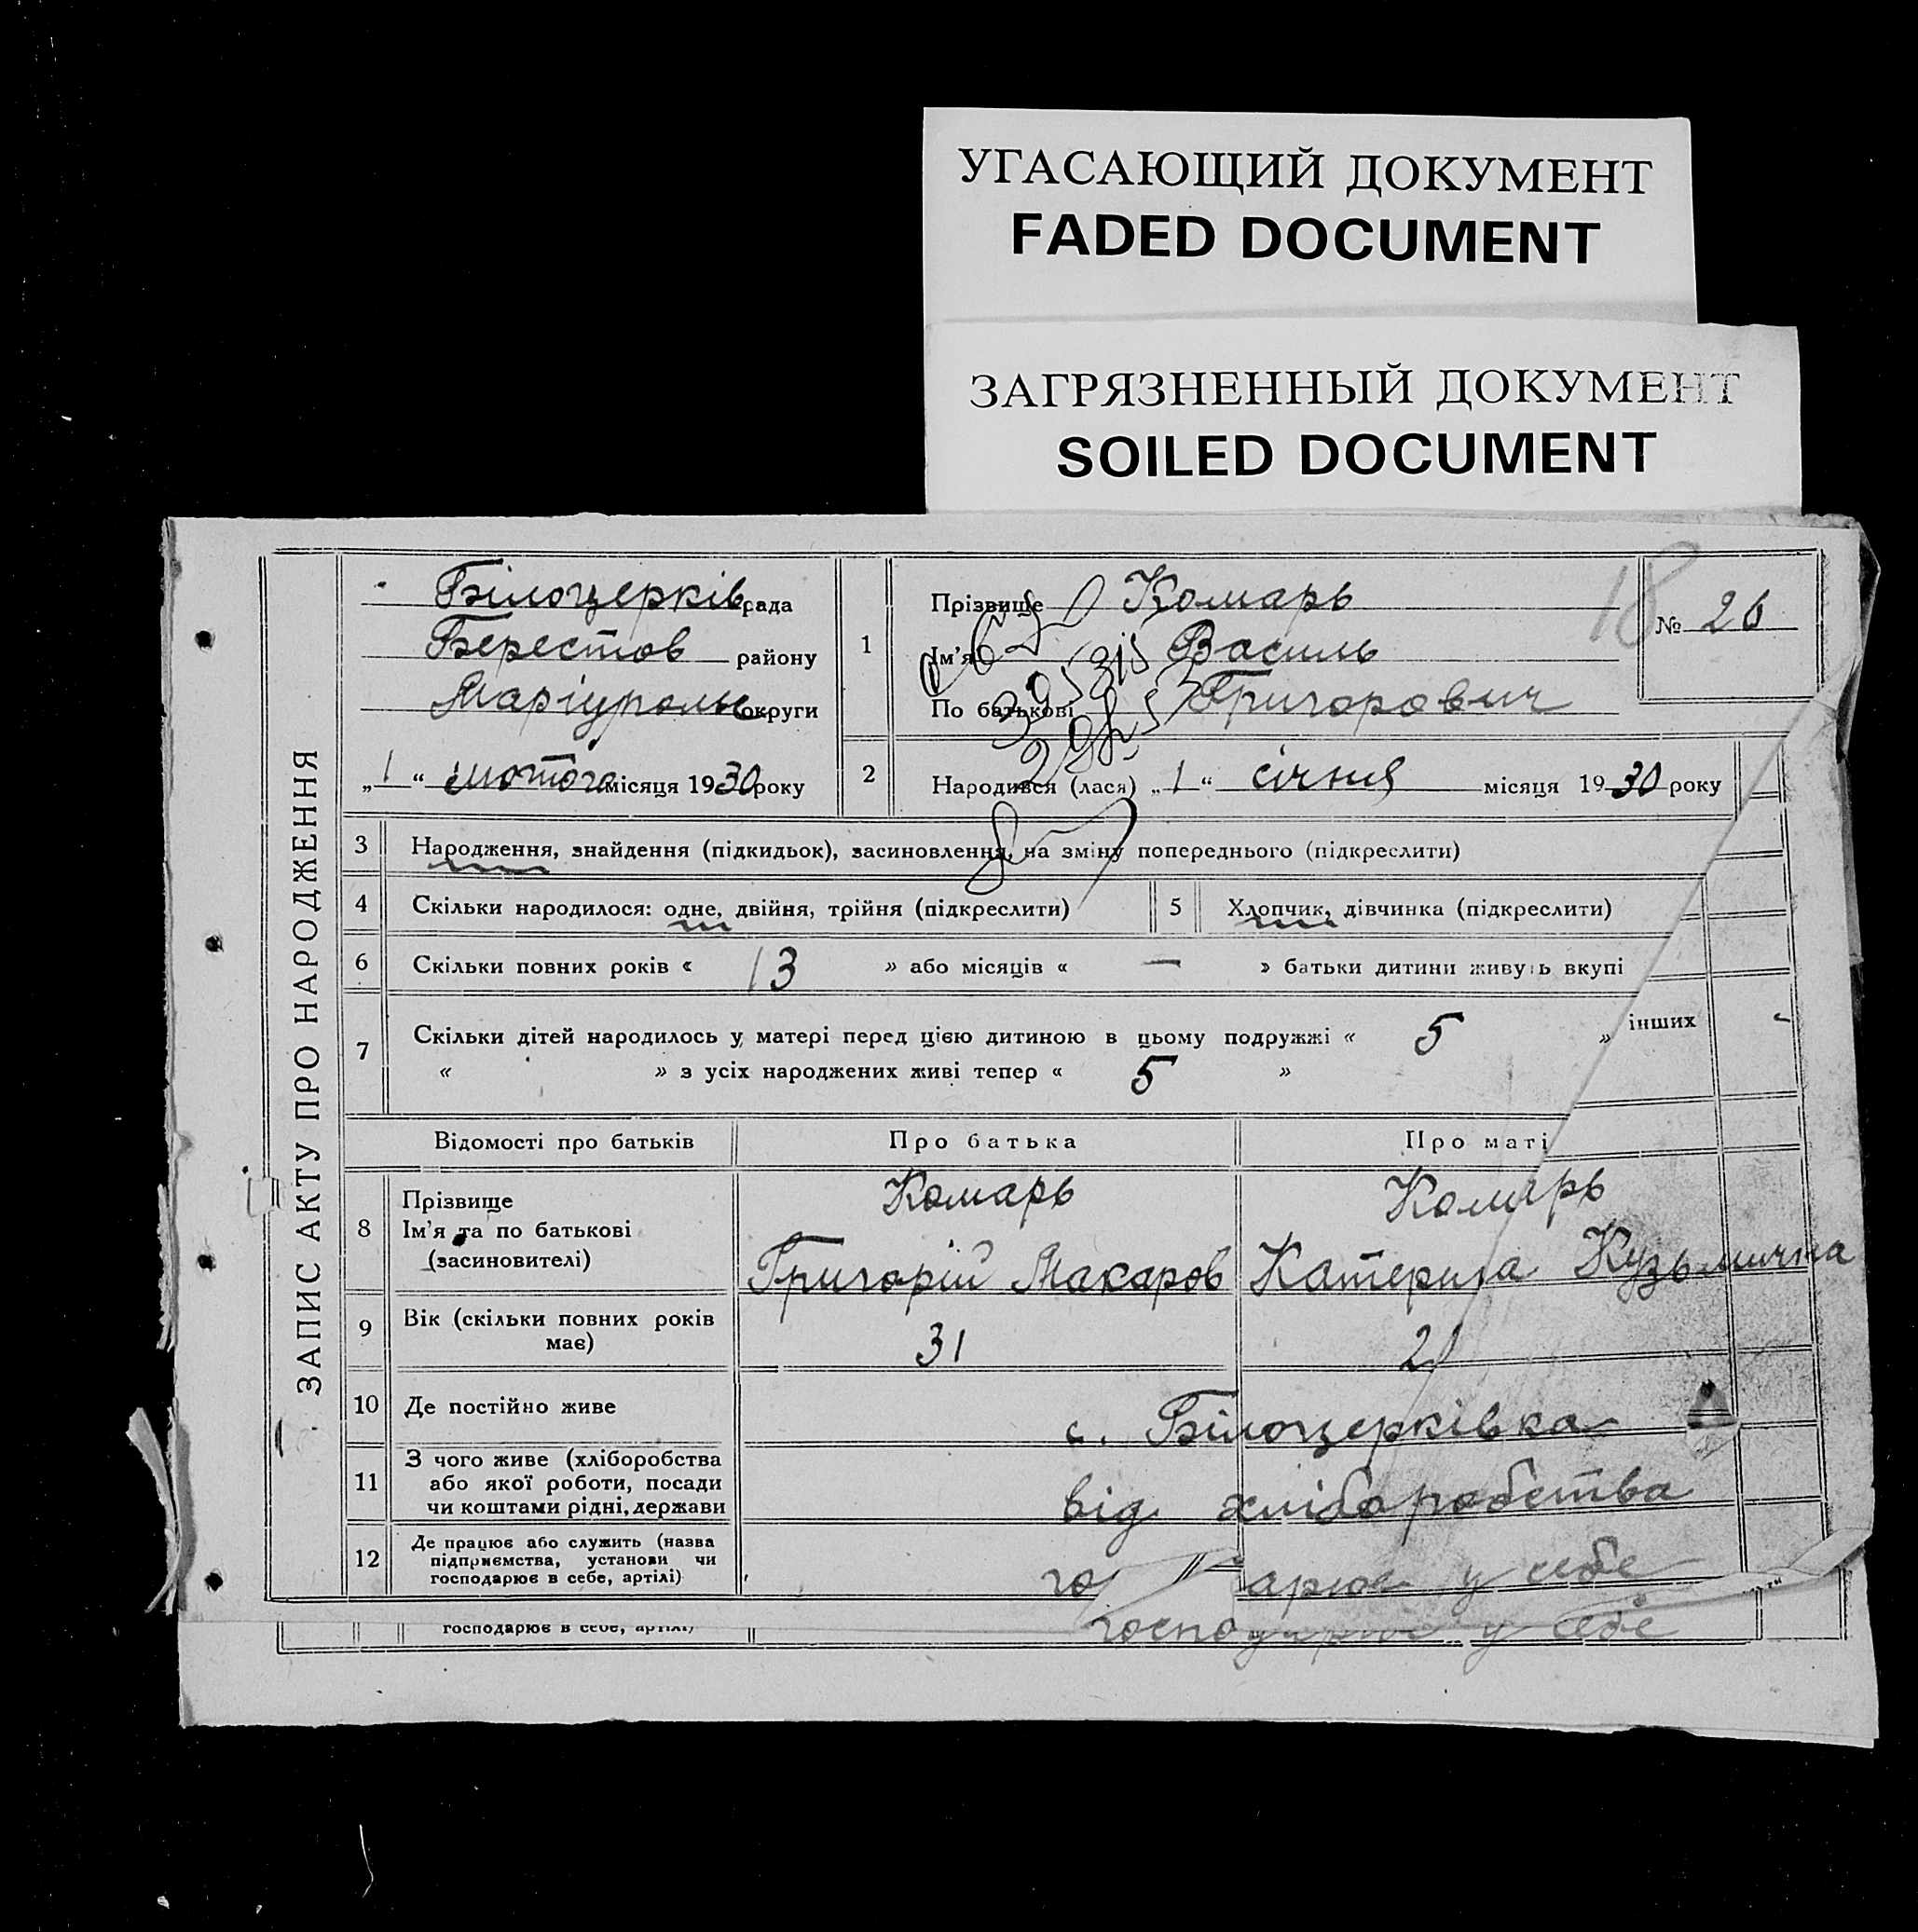 УГАСАЮЩИЙ ДОКУМЕНТ
FADED DOCUMENT
ЗАГРЯЗНЕННЫЙ ДОКУМЕНТ
SOILED DOCUMENT
ЗАПИС АКТУ ПРО НАРОДЖЕННЯ
Білоцерків рада
Берестов району
Маріуполь округи
„1“ лютого місяця 1930 року
18
№ 26
1
Прізвище Комарь
Ім'я Василь
По батькові Григорович
2
Народився (лася) „1“ січня місяця 1930 року
3 Народження, знайдення (підкидьок), засиновлення, на зміну попереднього (підкреслити)
4 Скільки народилося: одне, двійня, трійня (підкреслити)
5 Хлопчик, дівчинка (підкреслити)
6 Скільки повних років « 13 » або місяців « — » батьки дитини живуть вкупі
7 Скільки дітей народилось у матері перед цією дитиною в цьому подружжі « 5 » інших
« » з усіх народжених живі тепер « 5 »
Відомості про батьків Про батька Про маті
8 Прізвище Комарь Комарь
Ім'я та по батькові
(засиновителі) Григорій Макаров Катерина Кузьмична
9 Вік (скільки повних років
має) 31
10 Де постійно живе с. Білоцерківка
11 З чого живе (хліборобства
або якої роботи, посади
чи коштами рідні, держави від хліборобства
12 Де працює або служить (назва
підприємства, установи чи
господарює в себе, артілі) го арює у себе
господарює в себе, артілі) господарює у себе